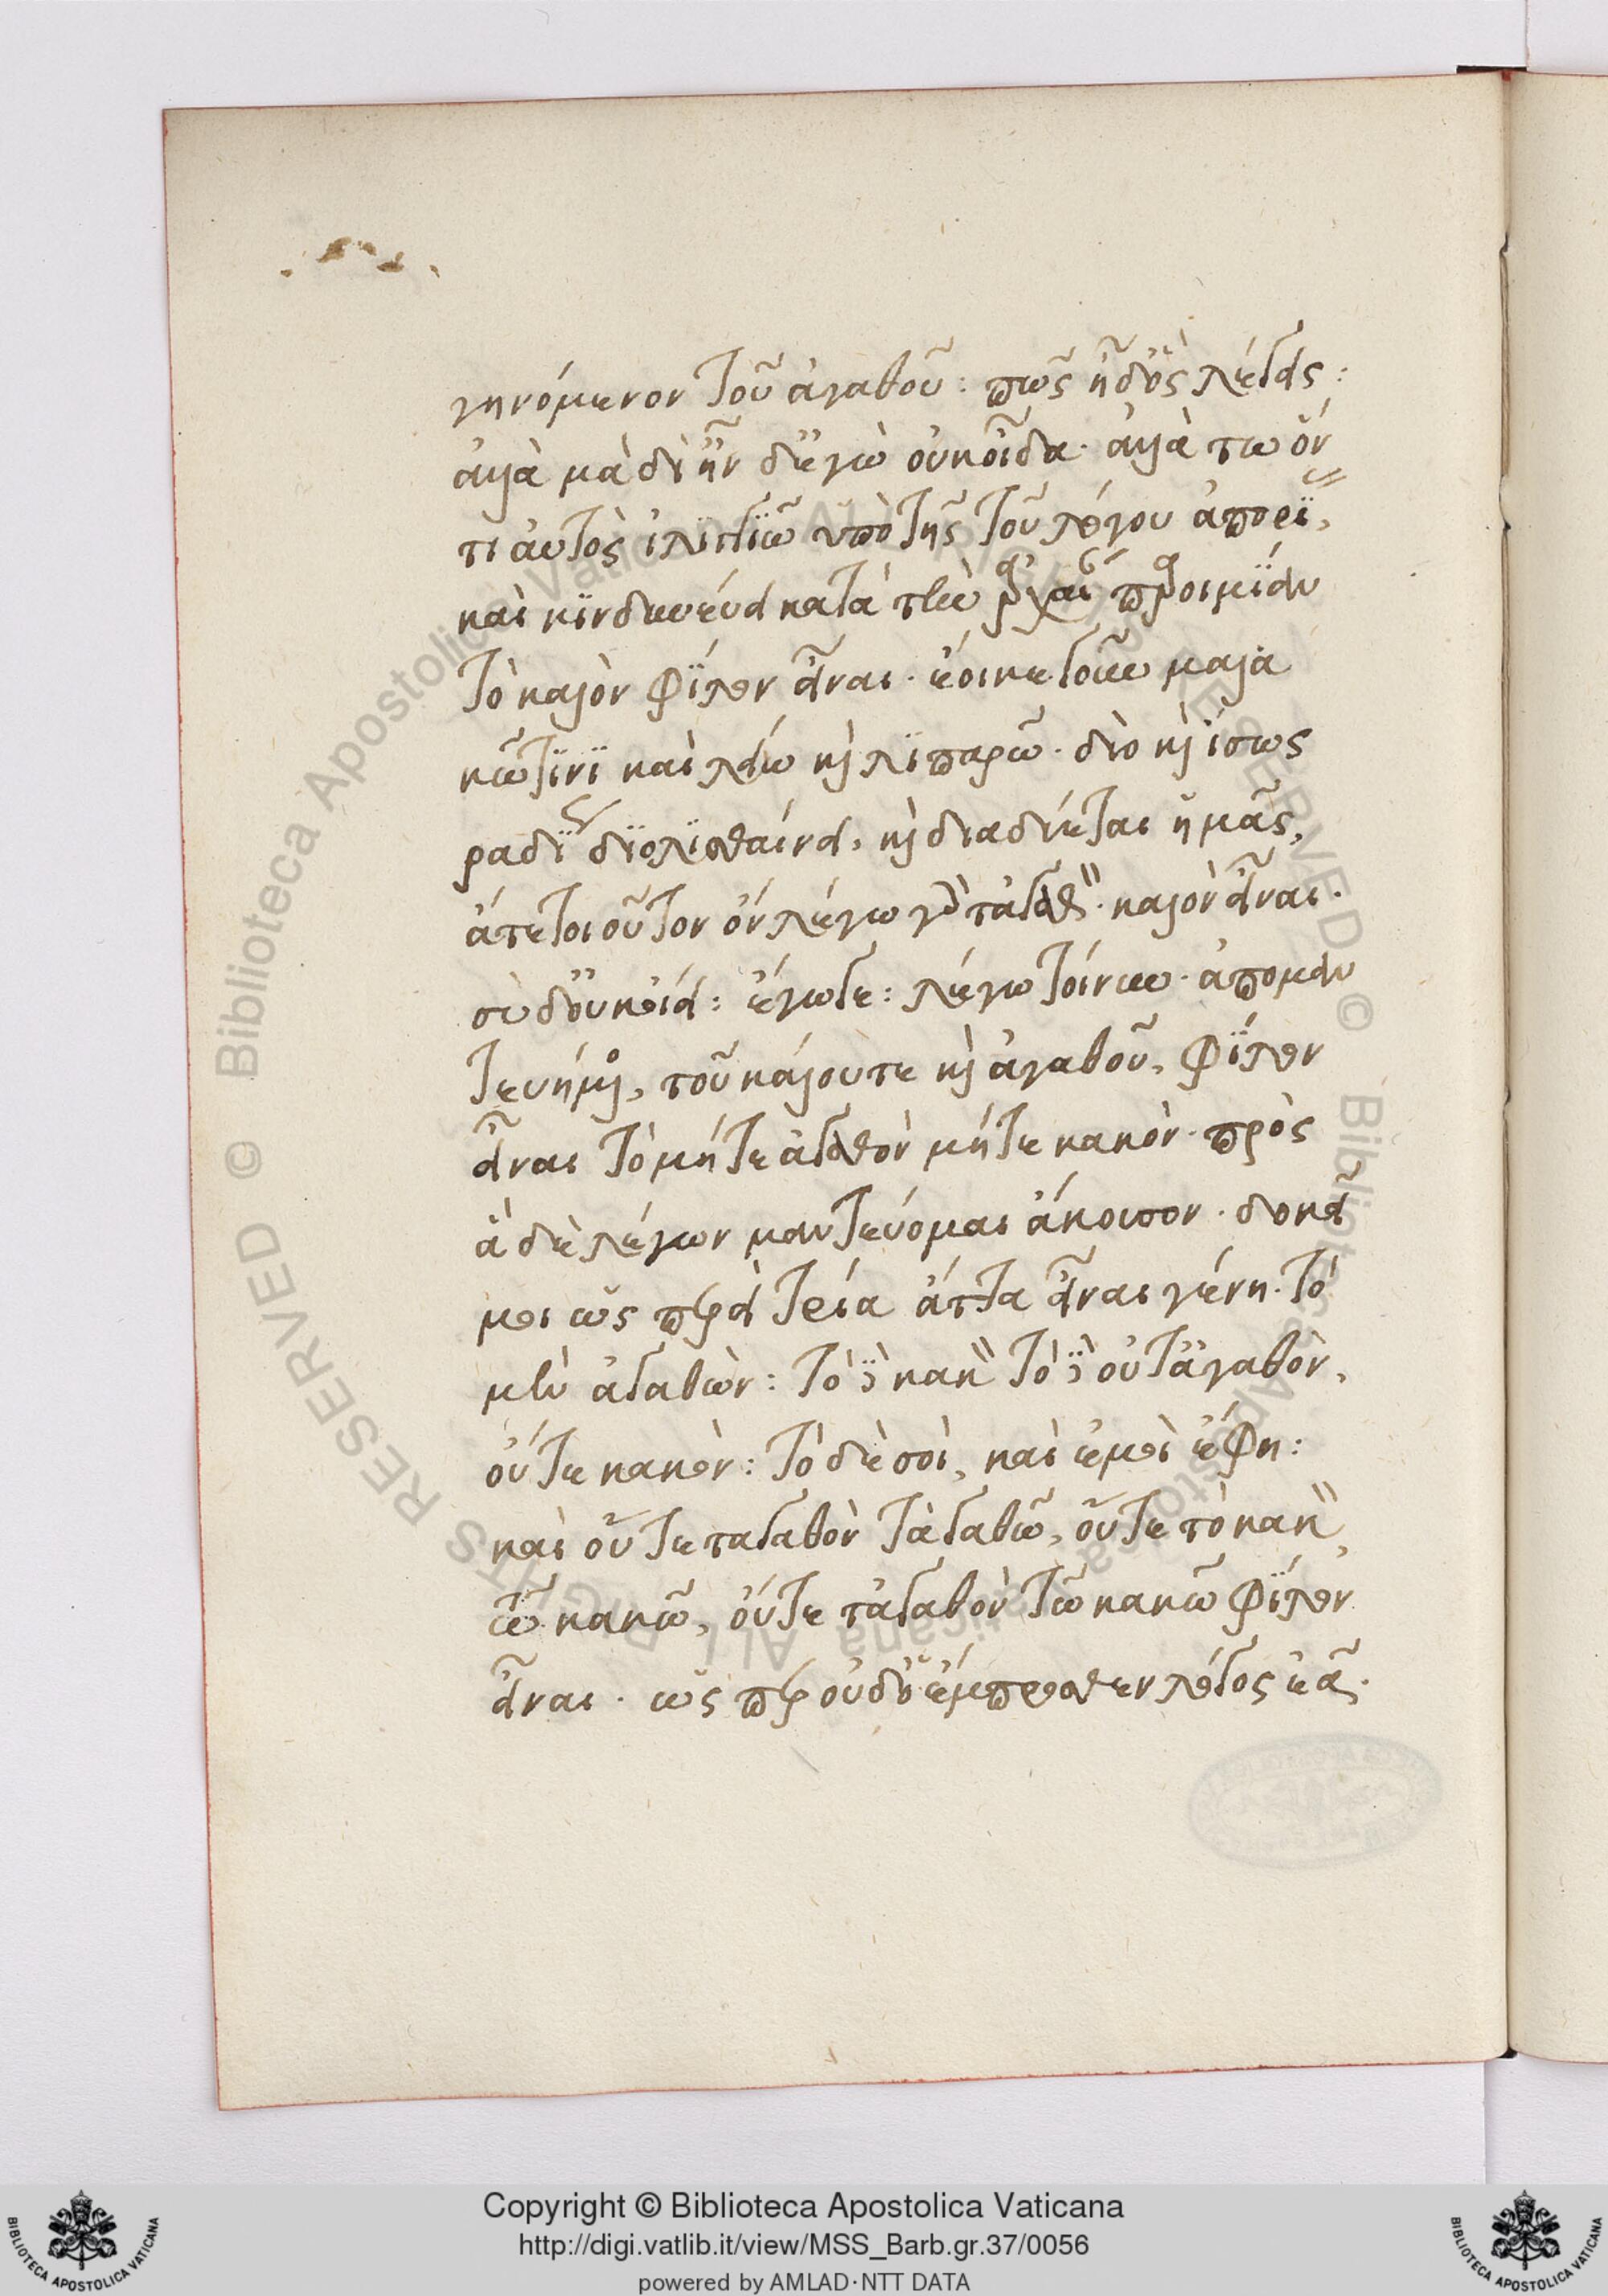 γηνόμενον τοῦ ἀγαθοῦ: πῶς ἦ δ' ὃς λέγεις:
ἀλλὰ μὰ δὶ ἦν δ' ἐγὼ οὐκ οἶδα· ἀλλὰ τω ὄν
τι αὐτὸς ἰλιγγιῶ ὑπὸ τῆς τοῦ λόγου ἀπορί,
καὶ κινδυνεύει κατὰ τὴν ἀρχαί παροιμίαν
τὸ καλὸν φίλον εἶναι· ἔοικε γοῦν μαλα
κῶ τινὶ καὶ λείω κὶ λιπαρῶ· διὸ κὶ ἴσως
ραδί διολισθαίνει, κὶ διαδύεται ἡμᾶς,
ἅτε τοιοῦτον ὄν λέγω γὰρ τἀγαθ καλὸν εἶναι·
σὺ δ' οὐκ οἴει: ἔγωγε: λέγω τοίνυν· ἀπομαν
τευόμ, τοῦ κάλου τε κὶ ἀγαθοῦ, φίλον
εἶναι τὸ μήτε ἀγαθὸν μήτε κακόν· πρὸς
ἃ δὲ λέγων μαντεύομαι ἄκουσον· δοκεῖ
μοι ὡς περεὶ τρία ἄττα εἶναι γένη· τὸ
μὲν ἀγαθὼν: τὸ δὲ κακ τὸ δὲ οὔτ' ἀγαθὸν,
οὔτε κακὸν: τὸ δὲ σοὶ, καὶ ἐμοὶ ἔφη:
καὶ οὔτε ταγαθὸν τἀγαθῶ, οὔτε τὸ κακ,
τῶ κακῶ, οὔτε τἀγαθὸν τῶ κακῶ φίλον
εἶναι· ὡς περ οὐδ' ὁ ἔμπροσθεν λόγος ἐᾶ·
Copyright © Biblioteca Apostolica Vaticana
http://digi.vatlib.it/view/MSS_Barb.gr.37/0056
powered by AMLAD·NTT DATA